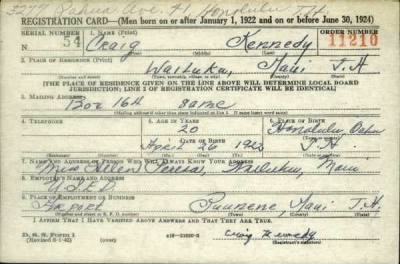 3277 Ave Honolulu T.H.
REGISTRATION CARD—(Men born on or after January 1, 1922 and on or before June 30, 1924)
SERIAL NUMBER 1. NAME (Print) ORDER NUMBER
54 Craig Kennedy 11210
2. PLACE OF RESIDENCE (Print)
Wailuku, Maui T.H.
(Town, township, village, or city) (County) (State)
[THE PLACE OF RESIDENCE GIVEN ON THE LINE ABOVE WILL DETERMINE LOCAL BOARD
JURISDICTION; LINE 2 OF REGISTRATION CERTIFICATE WILL BE IDENTICAL]
3. MAILING ADDRESS
Box 164 same
[Mailing address if other than place indicated on line 2. If same insert word same]
4. TELEPHONE 5. AGE IN YEARS 6. PLACE OF BIRTH
20 Honolulu, Oahu
DATE OF BIRTH
April 26 1922 T.H.
7. NAME AND ADDRESS OF PERSON WHO WILL ALWAYS KNOW YOUR ADDRESS
Miss Wailuku, Maui
8. EMPLOYER'S NAME AND ADDRESS
U.S.E.D.
9. PLACE OF EMPLOYMENT OR BUSINESS
Airport Puunene Maui T.H.
(Number and street or R. F. D. number) (Town) (County) (State)
I AFFIRM THAT I HAVE VERIFIED ABOVE ANSWERS AND THAT THEY ARE TRUE.
D. S. S. Form 1
(Revised 6-1-42)
Craig Kennedy
(Registrant's signature)